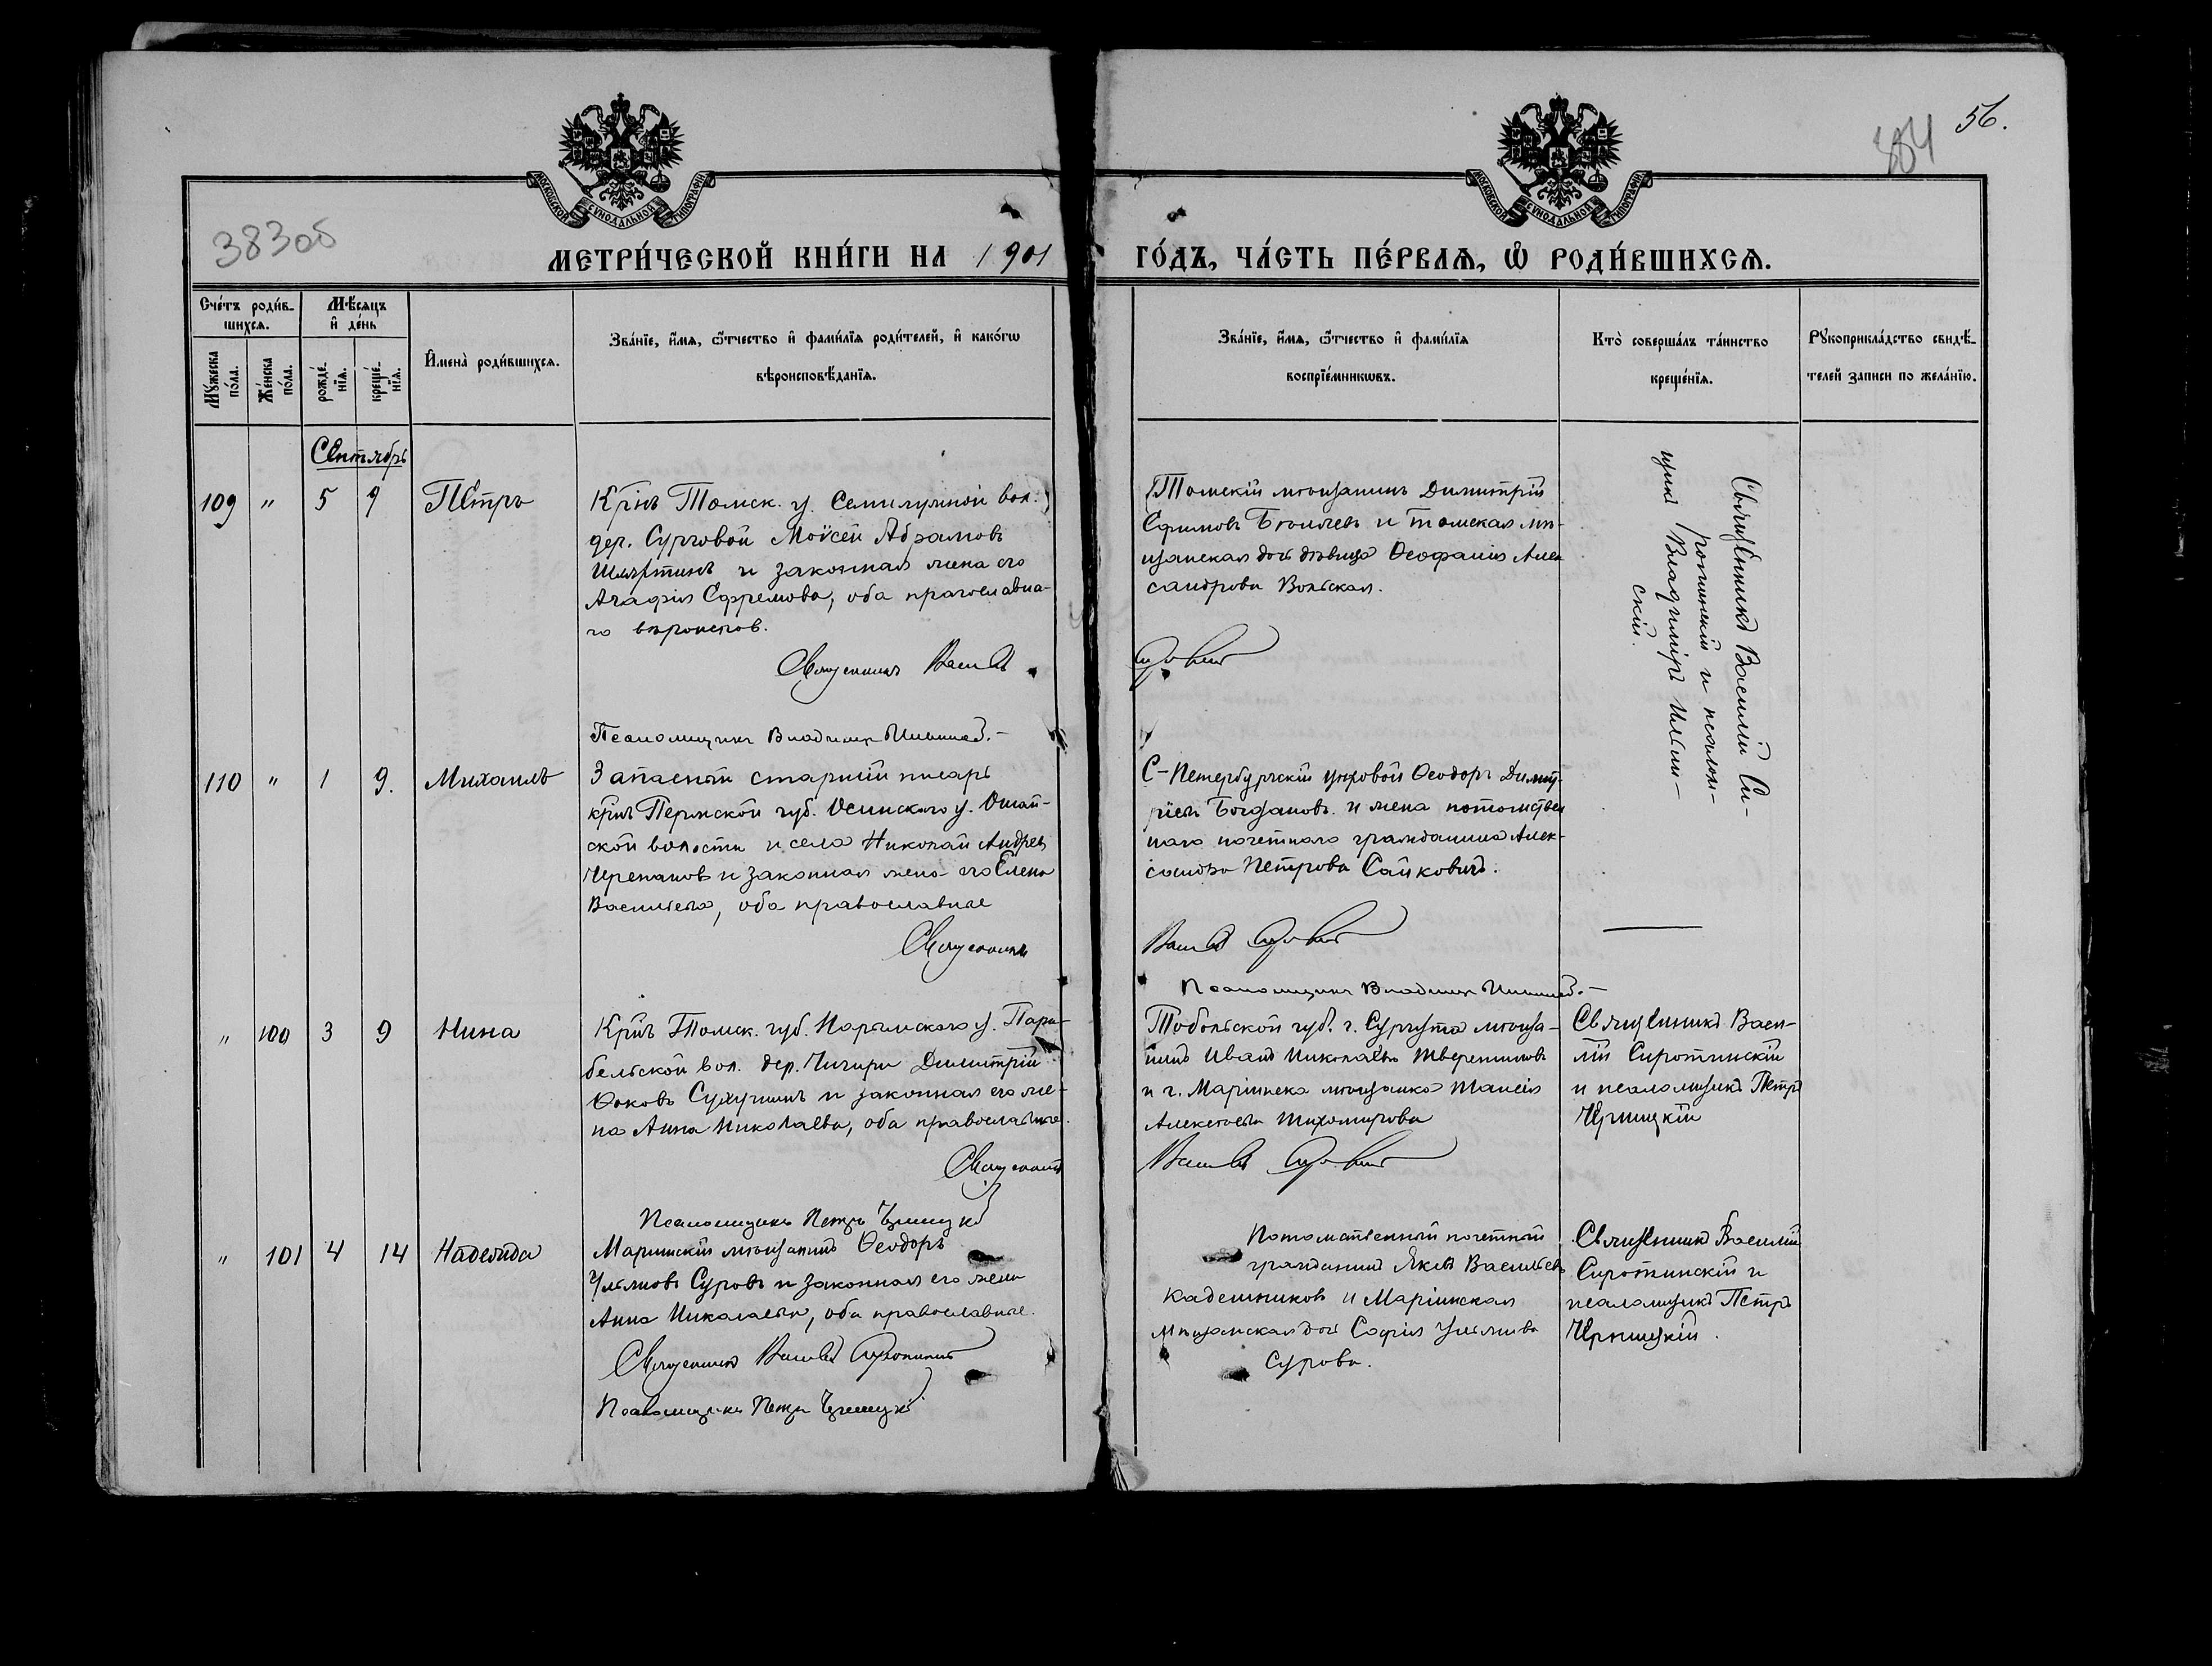 56.
384
383об
МОСКОВСКОЙ СУНОДАЛЬНОЙ ТИПОГРАФІИ
МОСКОВСКОЙ СУНОДАЛЬНОЙ ТИПОГРАФІИ
МЕТРИ́ЧЕСКОЙ КНИ́ГИ НА 1901
ГО́ДЪ, ЧА́СТЬ ПЕ́РВАѦ, Ѡ҆ РОДИ́ВШИХСѦ.
Сче́тъ роди́в-
шихсѧ.
Мѣ́сѧцъ
и҆ де́нь
Мꙋ́жеска
по́ла.
Же́нска
по́ла.
рожде́-
нїѧ.
креще́-
нїѧ.
И҆мена̀ роди́вшихсѧ.
Зва́нїе, и҆́мѧ, ѻ҆́тчество и҆ фами́лїѧ роди́телей, и҆ како́гѡ
вѣроисповѣ́данїѧ.
Зва́нїе, и҆́мѧ, ѻ҆́тчество и҆ фами́лїѧ
воспрїе́мникѡвъ.
Кто̀ соверша́лъ та́инство
креще́нїѧ.
Рꙋкоприкла́дство свидѣ́-
телей записи по жела́нїю.
Сентябрь
109 " 5 9 Петръ
Крнъ Томск. у. Семилужной вол.
дер. Сурговой Моѷсей Абрамовъ
и законная жена его
Агафія Ефремова, оба православна-
го вѣроиспов.
Священникъ Васил
Псаломщикъ Владимиръ
Томскій мѣщанинъ Димитрій
Ефимовъ и томская мѣ-
щанская дочь дѣвица Ѳеофанія Алек
сандрова Вольская.
Священникъ Василій Си-
ротинскій и псалом-
щикъ Владиміръ Ильин-
скій.
110 " 1 9. Михаилъ
Запасный старшій писарь
крнъ Пермской губ. Осинскаго у. Ошай-
ской волости и села Николай Андреев
Черепановъ и законная жена его Елена
Васильева, оба православные
Священникъ
С-Петербургскій цеховой Ѳеодоръ Димит-
ріевъ Богдановъ и жена потомствен
наго почетнаго гражданина Алек-
сандра Петрова Сайковичъ.
Псаломщикъ Владимир
" 100 3 9 Нина
Крнъ Томск. губ. Нарымскаго у. Пара-
бельской вол. дер. Чигири Димитрій
Ѳоковъ Сухушинъ и законная его же-
на Анна Николаева, оба православные.
Священникъ
Псаломщикъ Петръ
Тобольской губ. г. Сургута мѣща-
нинъ Иванъ Николаевъ Тверетиновъ
и г. Маріинска мѣщанка Таисія
Алексѣева Тихомирова
Священникъ Васи-
лій Сиротинскій
и псаломщикъ Петръ
" 101 4 14 Надежда
Маріинскій мѣщанинъ Ѳеодоръ
Ульяновъ Суровъ и законная его жена
Анна Николаева, оба православные.
Священникъ Василій Сиротинскій
Псаломщикъ Петръ
Потомственный почетный
гражданинъ Яковъ Васильевъ
Кадешниковъ и Маріинская
Мѣщанская дочь Софія Ульянова
Сурова.
Священникъ Василій
Сиротинскій и
псаломщикъ Петръ